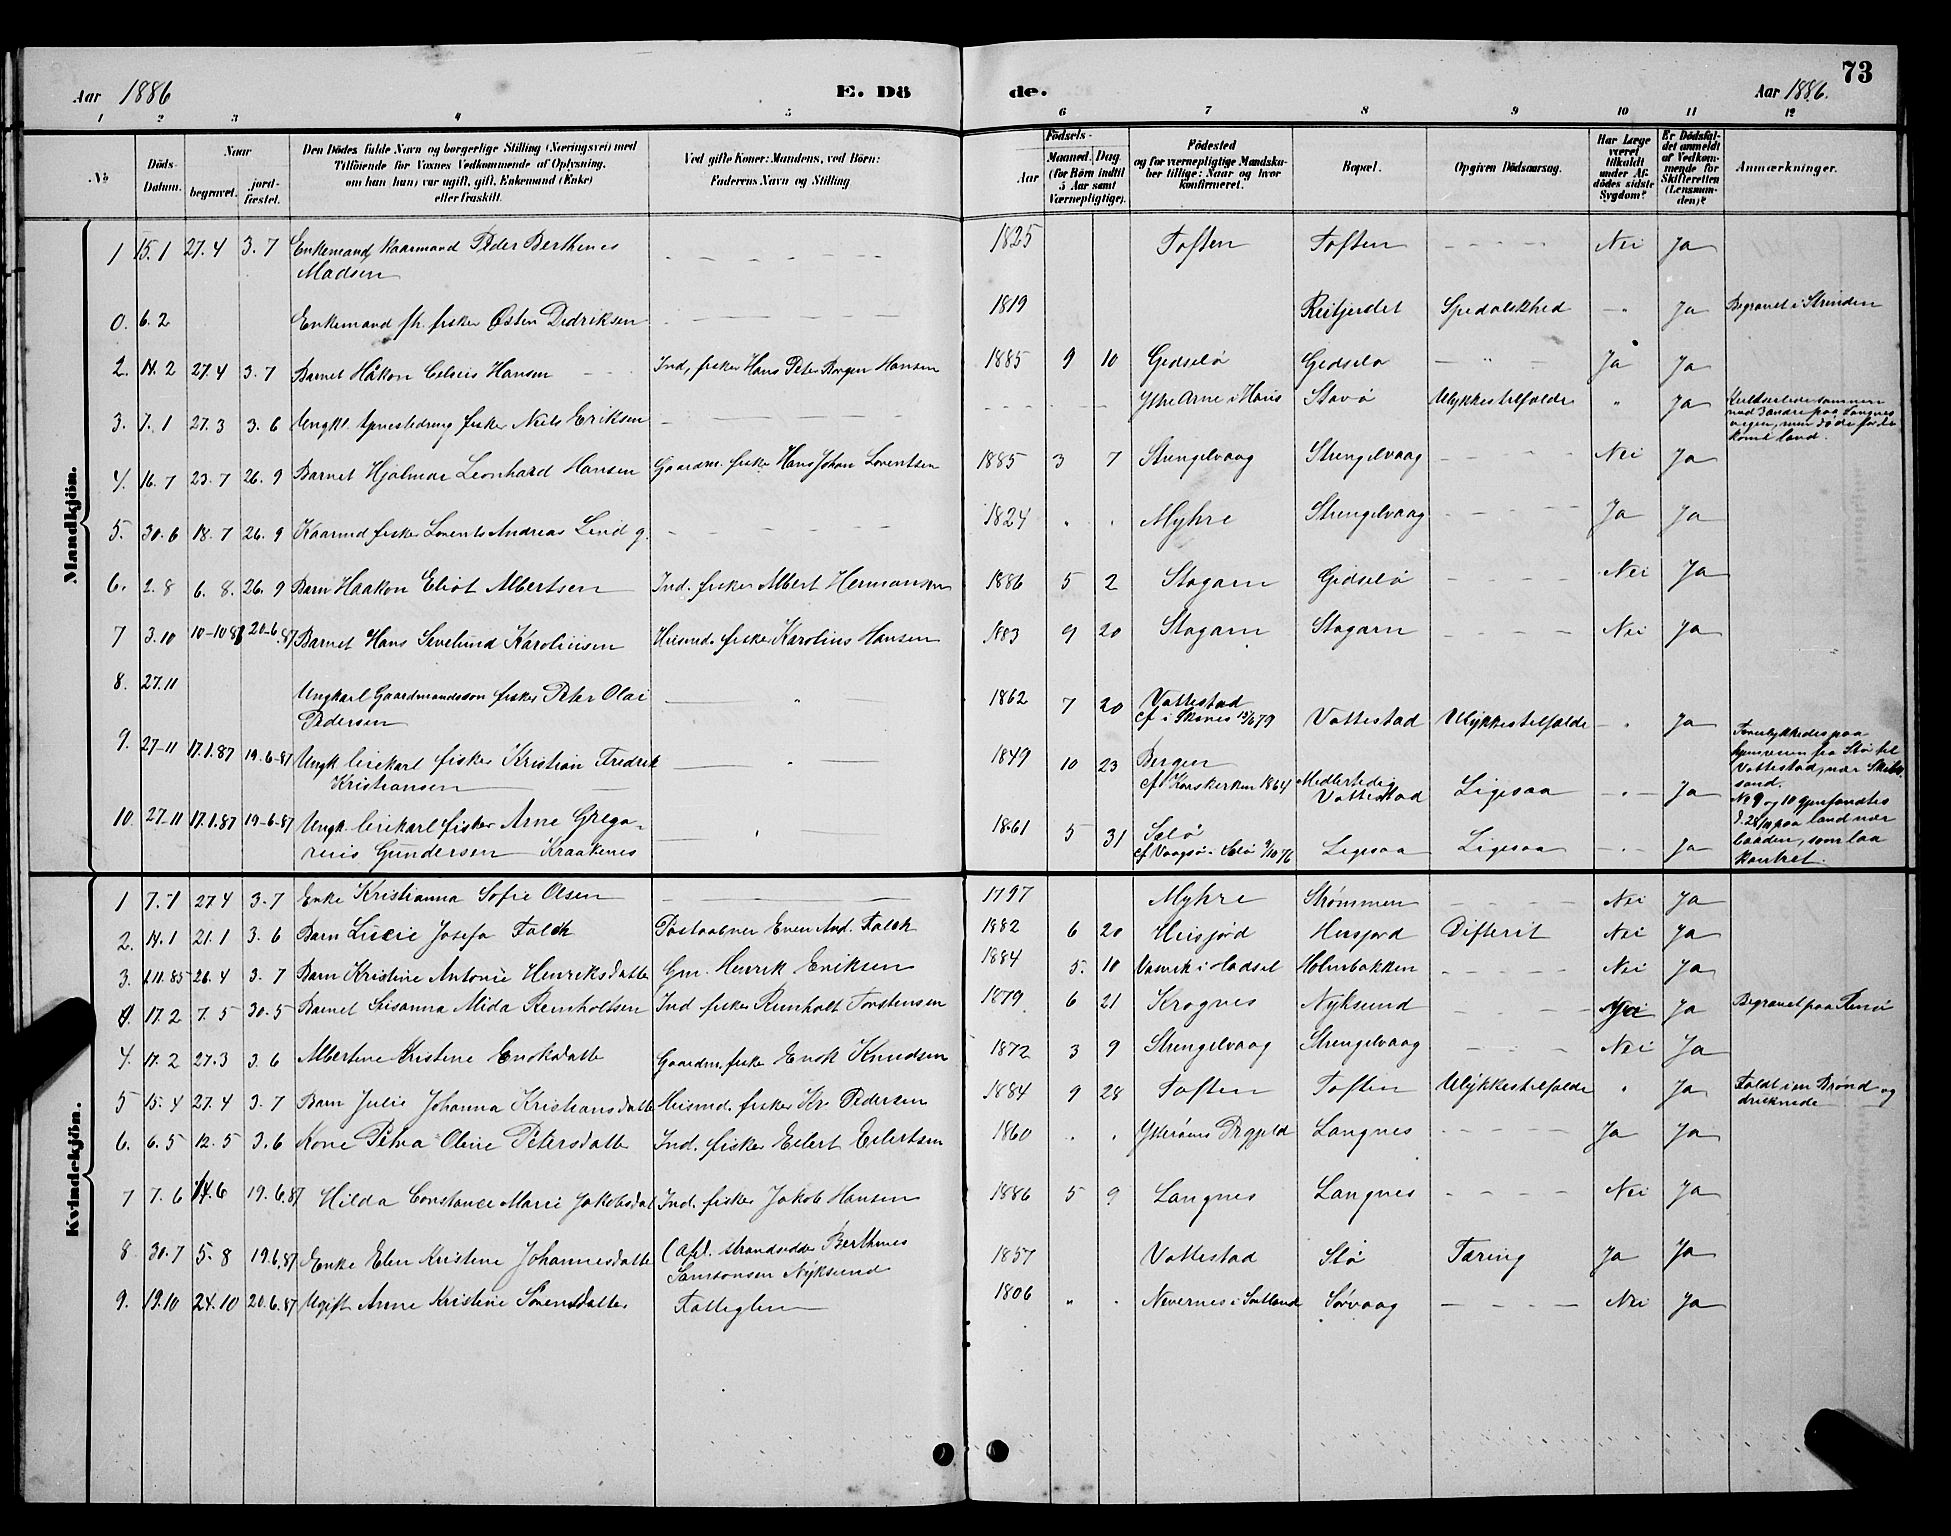 73
Aar 1886 E. Dö de. Aar 1886.
1 2 3 4 5 6 7 8 9 10 11 12
No
Döds-Datum.
Naar
begravet.
jordfæstet.
Den Dödes fulde Navn og borgerlige Stilling (Næringsvei) med
Tilföiende for Voxnes Vedkommende af Oplysning,
om han (hun) var ugift, gift, Enkemand (Enke)
eller fraskilt.
Ved gifte Koner: Mandens, ved Börn:
Faderens Navn og Stilling
Födsels-
Aar Maaned. Dag
(for Börn indtil
5 Aar samt
Værnepligtige).
Födested
og for værnepligtige Mandska-
ber tillige: Naar og hvor
konfirmeret.
Bopæl.
Opgiven Dödsaarsag.
Har Læge
været
tilkaldt
under Af-
dödes sidste
Sygdom?
Er Dödsfal-
det anmeldt
af Vedkom-
mende for
Skifteretten
(Lensman-
den)?
Anmærkninger.
Mandkjön.
1 15.1 27.4 3.7 Enkemand Kaarmand Peder Berthines
Madsen 1825 Toften Toften Nei Ja
0. 6.2 Enkemand fh. fisker Østen Dedriksen 1819 Reitjerdet Spedalskhed Ja Begravet i Strinden
2. 14.2 27.4 3.7 Barnet Håkon Celsius Hansen Ind. fisker Hans Peter Borgen Hansen 1885 9 10 Gidselø Gidselø Ja Ja
3. 7.1 27.3 3.6 Ungkl. fisker Niels Eriksen Ytre Arne i Haus Stavø Ulykkestilfælde " Ja
med 3 andre paa Langnes
komi land.
4. 16.7 23.7 26.9 Barnet Hjalmar Leonhard Hansen Gaardm. fisker Hans Johan Lorentsen 1885 3 7 Strengelvaag Strengelvaag Nei Ja
5. 30.6 18.7 26.9 Kaarmd fisker Lorents Andreas Lind g. 1824 Myhre Strengelvaag Ja Ja
6. 2.8 6.8. 26.9 Barn Haakon Eliot Albertsen Ind. fisker Albert Hermansen 1886 5 2 Stagarn Gidselø Nei Ja
7 3.10 10-10 20-6.87 Barnet Hans Sevelund Karoliusen Husmd. fisker Karolius Hansen 1883 9 20 Stagarn Stagarn Nei Ja
8. 27.11 Ungkarl Gaardmandssøn fisker Peter Olai
Pedersen 1862 7 20 Vottestad
cf i Skones 15/6 79 Vottestad Ulykkestilfælde Ja
9. 27-11 17.1.87 19-6-87 Ungk. leiekarl fisker Kristian Fredrik
Kristiansen 1849 10 23 Bergen
cf Korskirken 1864 Midlertidig
Vottestad Ligesaa Ja Forulykkedes paa
hjemreisen fra Stø til
Vottestad, nær Skib
sand.
10. 27-11 17.1.87 19-6-87 Ungk. leiekarl fisker Arne Grego-
rius Gundersen Kraakenes 1861 5 31 Selø
cf Vaagsø - Selø Ligesaa Ligesaa Ja No 9 og 10 gjenfandtes
paa land nær
baaden, som laa
kantret.
Kvindekjön.
1 7.1 27.4 3.7 Enke Kristianna Sofie Olsen 1797 Myhre Strømmen Nei Ja
2. 14.1 21.1 3.6 Barn Lucie Josefa Falck Postaabner Even And. Falck 1882 6 20 Husjord Husjord Difterit Nei Ja
3. 26.4 3.7 Barn Kristine Antonie Henriksdatter Gm. Henrik Eriksen 1884 5. 10 Vasvik i Hadsel Holmbakken Nei Ja
0. 17.2 7.5 30.5 Barnet Susanna Alida Reinholtsen Ind. fisker Reinholt Torstensen 1879 6 21 Krognes Nyksund Nei Ja Begravet paa
4. 17.2 27.3 3.6 Albertine Kristine Enoksdatter Gaardm. fisker Enok Knudsen 1872 3 9 Strengelvaag Strengelvaag Nei Ja
5 15.4 27.4 3.7 Barn Julie Johanna Kristiansdatter Husmd. fisker Kr. Pedersen 1884 9 28 Toften Toften Ulykkestilfælde Ja Faldt i en Brønd og
druknede
6. 6.5 12.5 3.6 Kone Petra Oline Petersdatter Ind. fisker Eilert Eilertsen 1860 Langnes Ja Ja
7 7.6 14.6 19.6.87 Hilda Constance Marie Jakobsdat Ind. fisker Jakob Hansen 1886 5 9 Langnes Langnes Nei Ja
8. 30.7 5.8 19.6.87 Enke Elen Kristine Johannesdatter (Afd. Strandsidder Berthines
Samsonsen Nyksund 1857 Vottestad Stø Tæring Ja Ja
9. 19.10 24.10 20.6.87 Ugift Anne Kristine Sørensdatter Fattiglem 1806 Nevernes i Sortland Sørvaag Nei Ja